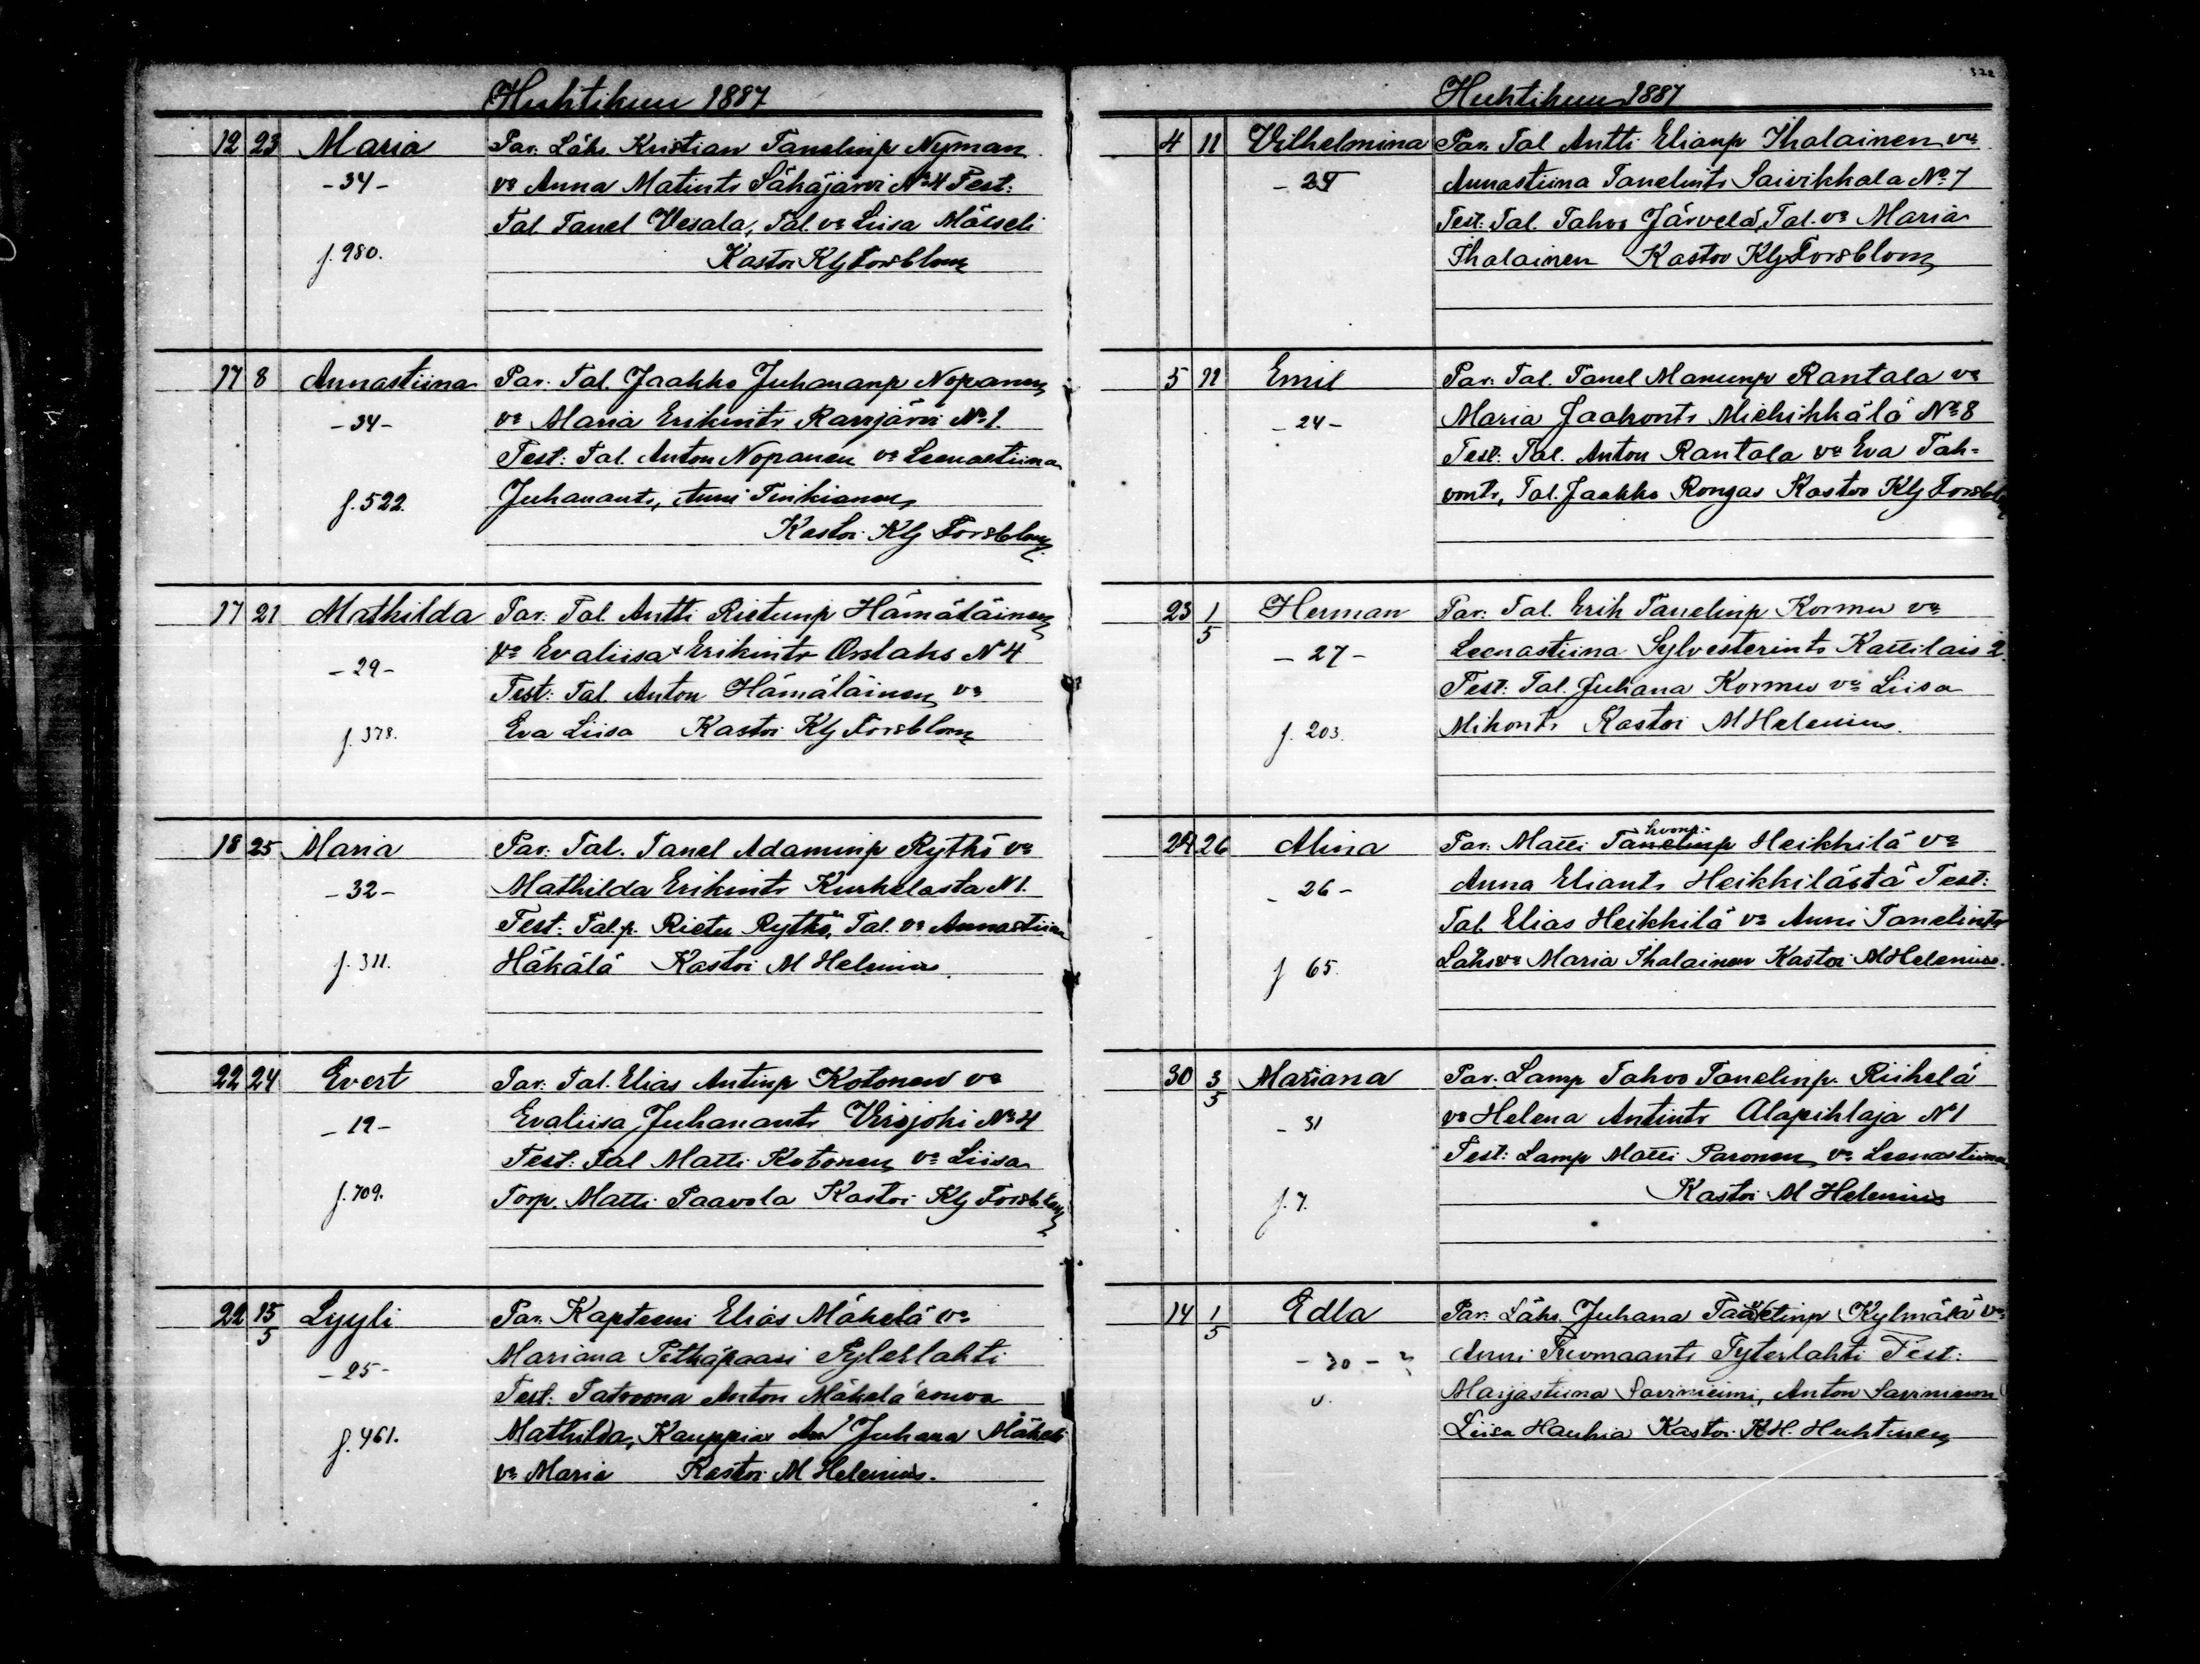 Huhtikuu 1887
12 23 Maria Par: Lähs. Kristian Tanelinp Nyman
-34- va Anna Matints Säkäjärvi No 4 Test:
Tal. Tanel Vesala, Tal. va Liisa Mässeli
f. 980. Kastoi Klj Forsblom
17 8 Annastiina Par: Tal. Jaakko Juhananp Nopanen
-34- va Maria Erikints Ravijärvi No 1.
Test: Tal. Anton Nopanen va Leenastiina
f. 522. Juhanants, Anni Tinkianen,
Kastoi Klj Forsblom
17 21 Mathilda Par: Tal. Antti Rietunp Hämäläinen
-29- va Evaliisa Erikints Orslahs N 4
Test: Tal. Anton Hämäläinen va
f. 378. Eva Liisa Kastoi Klj Forsblom
18 25 Maria Par: Tal. Tanel Adaminp Rytkö va
-32- Mathilda Erikints Kurkelasta N 1.
Test: Tal.p. Rietu Rytkö, Tal. va Annastiina
f. 311. Häkälä Kastoi M Helenius.
22 24 Evert Par: Tal. Elias Antinp Kotonen va
-19- Evaliisa Juhanants Virojoki No 4
Test: Tal Matti Kotonen va Liisa
f. 709. Torp. Matti Paavola Kastoi Klj Forsblom
22 15/5 Lyyli Par. Kapteeni Elias Mäkelä va
-25- Mariana Pitkäpaasi Pyterlahti
Test: Patroona Anton Mäkelä rouva
f. 461. Mathilda, Kauppias Juhana Mäkelä
va Maria Kastoi M Helenius.
Huhtikuu 1887
4 11 Vilhelmina Par. Tal Antti Elianp Ihalainen va
Annastiina Tanelints Saivikkala No 7
Test: Tal. Tahvo Järvelä, Tal. va Maria
Ihalainen Kastoi Klj Forsblom
5 11 Emil Par: Tal. Tanel Manunp Rantala va
-24- Maria Jaakonts Miehikkälä No 8
Test: Tal. Anton Rantala va Eva Tah-
vonts, Tal. Jaakko Rongas Kastoi Klj Forsblom
23 1/5 Herman Par: Tal. Erik Tanelinp Kormu va
-27- Leenastiina Sylvesterints Kattilais 2.
Test: Tal. Juhana Kormu va Liisa
f. 203. Mikonts Kastoi M Helenius.
24 26 Alina Par: Matti Tahvonp. Heikkilä va
-26- Anna Eliants Heikkilästä Test:
Tal. Elias Heikkilä va Anni Tanelints
f 65. Lähs va Maria Ihalainen Kastoi M Helenius.
30 3/5 Mariana Par: Lamp Tahvo Tanelinp. Riihelä
-31 va Helena Antints Alapihlaja N 1
Test: Lamp Matti Paronen va Leenastiina
f. 7. Kastoi M Helenius
14 1/5 Edla Par: Lähs. Juhana Kylmälä va
-30- Anni Tuomaants Pyterlahti Test:
Marjastiina Saviniemi, Anton Saviniemi
Liisa Haukia Kastoi K.H. Huhtinen